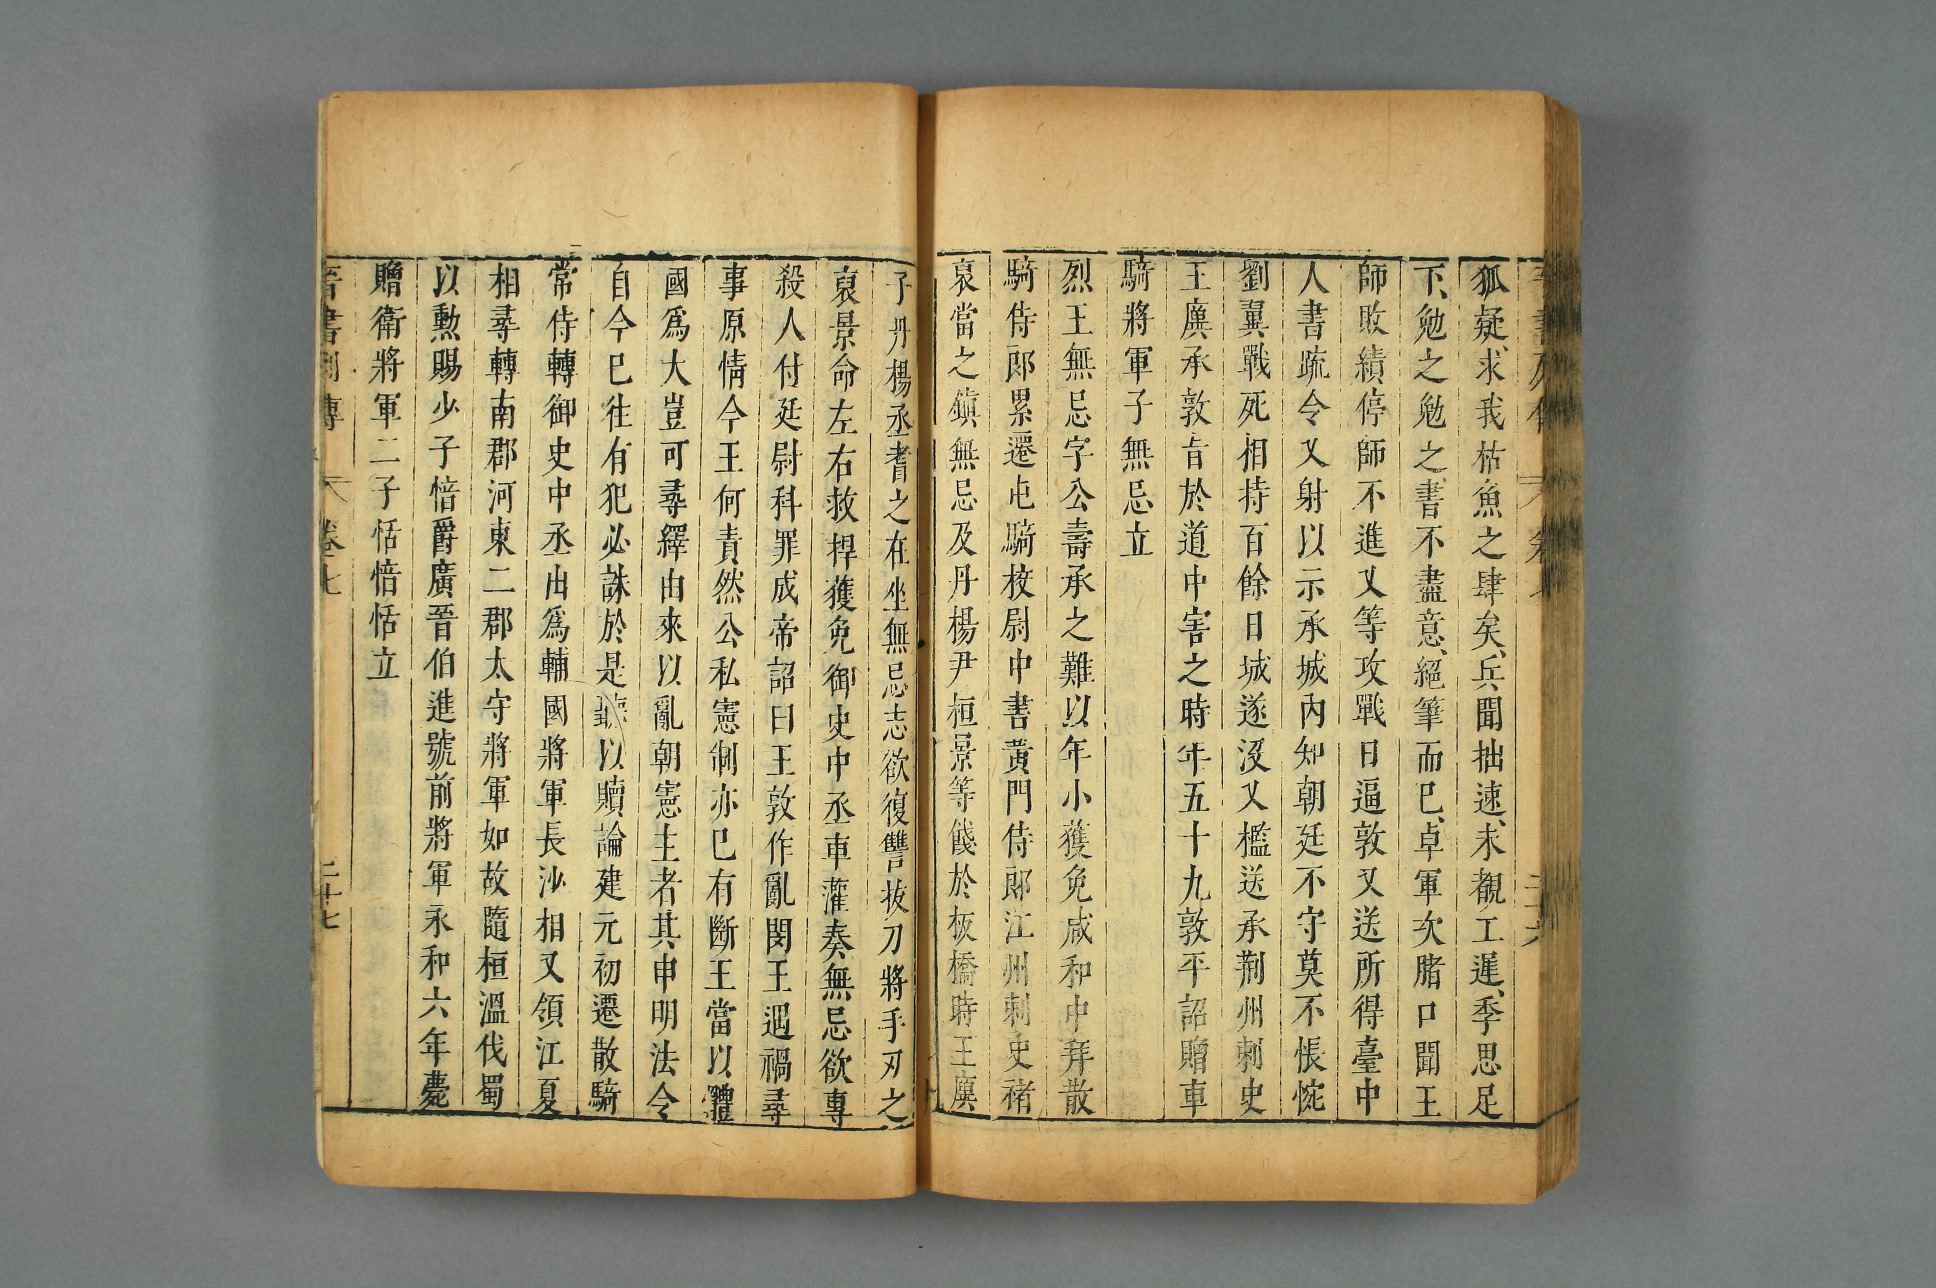 狐疑、求我枯魚之肆矣、兵聞拙速、未覩工遲、季思足
下、勉之勉之、書不盡意、絕筆而已、卓軍次腊口聞王
師敗績停師不進乂等攻戰日逼敦又送所得臺中
人書疏令乂射以示承城內知朝廷不守莫不悵惋
劉翼戰死相持百餘日城遂沒乂檻送承荆州刺史
王廙承敦旨於道中害之時年五十九敦平詔贈車
騎將軍子無忌立
烈王無忌字公壽承之難以年小獲免咸和中拜散
騎侍郎累遷屯騎校尉中書黃門侍郎江州刺史褚
裒當之鎮無忌及丹楊尹桓景等餞於板橋時王廙
子丹楊丞耆之在坐無忌志欲復讐拔刀將手刃之
裒景命左右救捍獲免御史中丞車灌奏無忌欲專
殺人付廷尉科罪成帝詔曰王敦作亂閔王遇禍尋
事原情今王何責然公私憲制亦已有斷王當以體
國爲大豈可尋繹由來以亂朝憲主者其申明法令
自今已往有犯必誅於是聽以贖論建元初遷散騎
常侍轉御史中丞出爲輔國將軍長沙相又領江夏
相尋轉南郡河東二郡太守將軍如故隨桓溫伐蜀
以勲賜少子愔爵廣晉伯進號前將軍永和六年薨
贈衛將軍二子恬愔恬立
晉書列傳 卷七 二十七